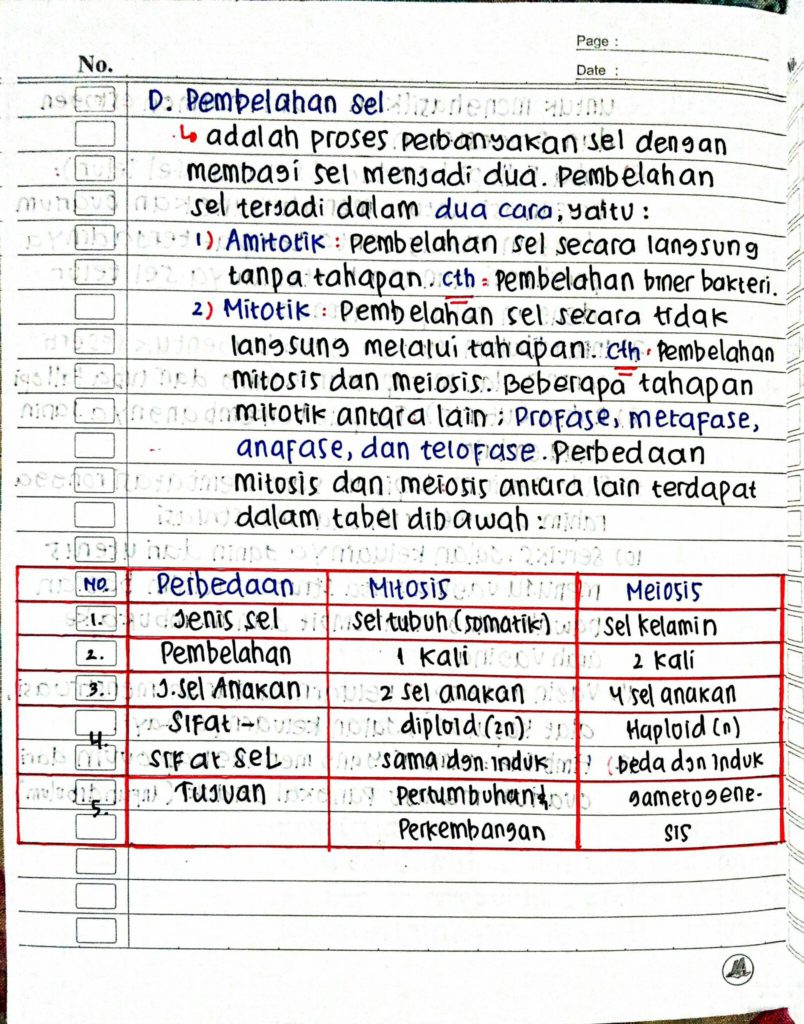 Page :
No.
Date :
D. Pembelahan sel
↳ adalah proses perbanyakan sel dengan
membagi sel menjadi dua. Pembelahan
sel terjadi dalam dua cara, yaitu :
1) Amitotik : Pembelahan sel secara langsung
tanpa tahapan. cth : Pembelahan biner bakteri.
2) Mitotik : Pembelahan sel secara tidak
langsung melalui tahapan. cth : Pembelahan
mitosis dan meiosis. Beberapa tahapan
mitotik antara lain : Profase, metafase,
anafase, dan telofase. Perbedaan
mitosis dan meiosis antara lain terdapat
dalam tabel dibawah :
NO. Perbedaan Mitosis Meiosis
1. Jenis sel sel tubuh (somatik) sel kelamin
2. Pembelahan 1 kali 2 kali
3. J. sel Anakan 2 sel anakan 4 sel anakan
4. Sifat → diploid (2n) Haploid (n)
sifat sel sama dgn induk beda dgn induk
5. Tujuan Pertumbuhan & gametogene-
Perkembangan sis